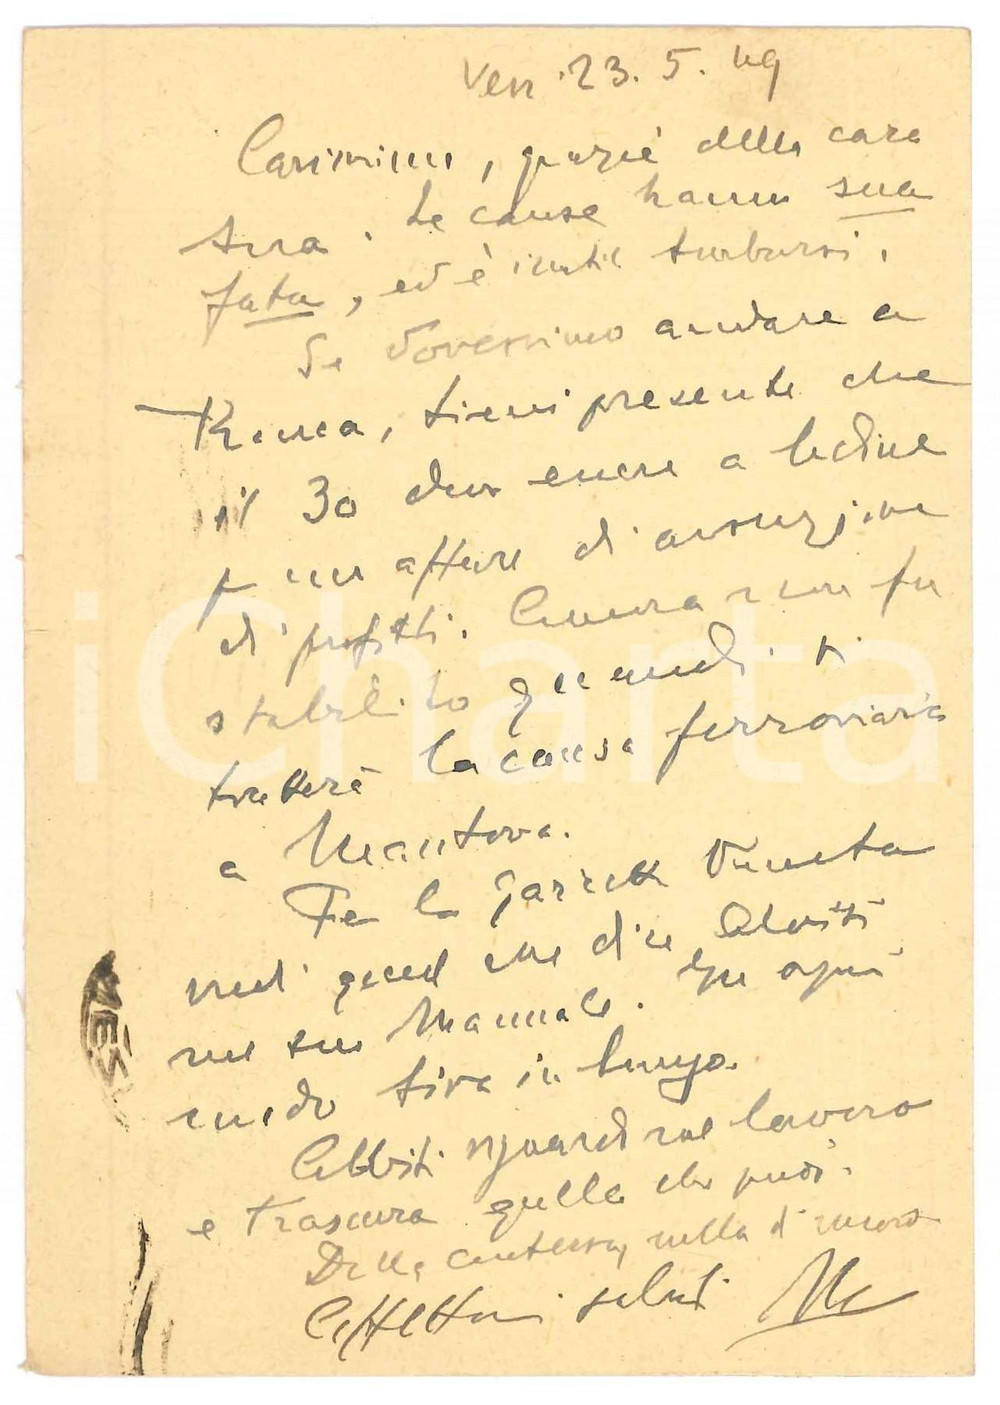 Ven. 23. 5. 49
Carissimo, grazie della cara
tua. Le cause hanno sua
fata, ed è inutile turbarsi.
Se dovessimo andare a
Roma, tieni presente che
il 30 devo essere a Udine
p un affare di avocazione
di profitti. Ancora non fu
stabilito quando si
tratterà la causa ferroviaria
a Mantova.
Per la
vedi quel che dice
nel suo Manuale. In ogni
modo tira in lungo.
Abbiti riguardi nel lavoro
e trascura quello che puoi.
Della contessa, nulla di nuovo
Affettuosi saluti
iCharta